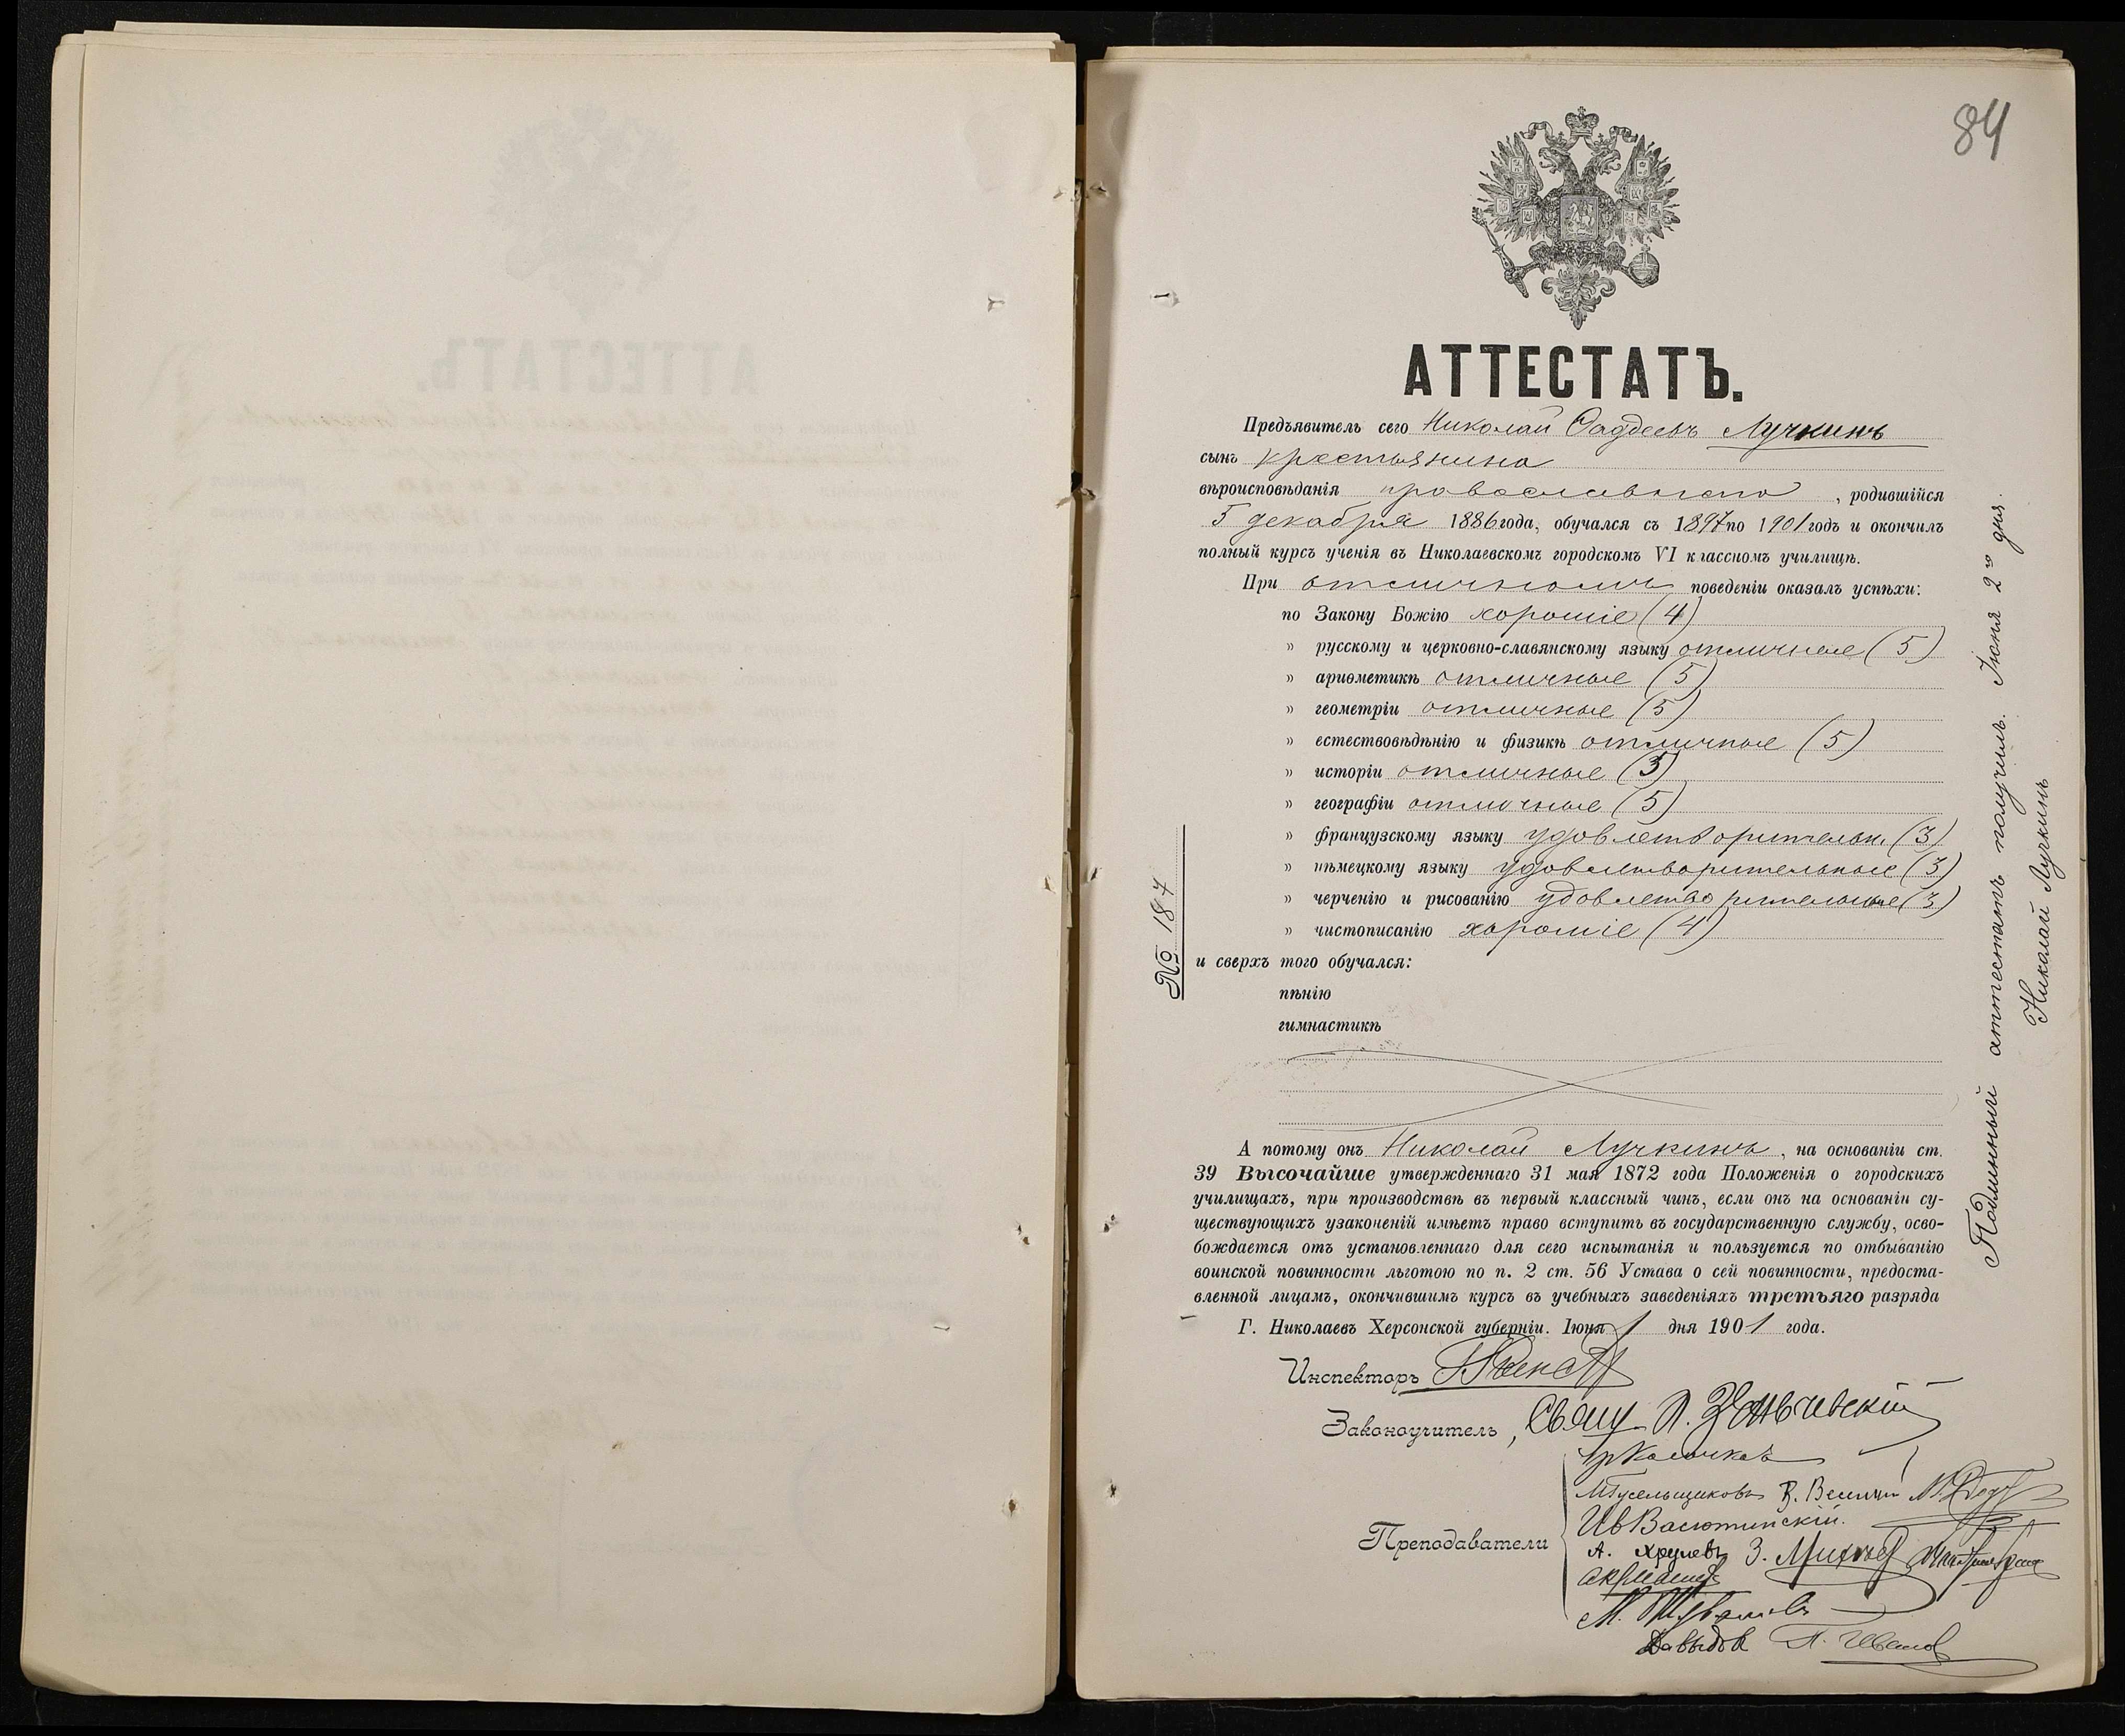 84
АТТЕСТАТЪ.
Предъявитель сего Николай Ѳаддеевъ Лучкинъ
сынъ крестьянина
вѣроисповѣданія православнаго, родившійся
5 декабря 1886 года, обучался съ 1897 по 1901 годъ и окончилъ
полный курсъ ученія въ Николаевскомъ городскомъ VI классномъ училищѣ.
При отличномъ поведеніи оказалъ успѣхи:
по Закону Божію хорошіе (4)
» русскому и церковно-славянскому языку отличные (5)
» ариѳметикѣ отличные (5)
» геометріи отличные (5)
» естествовѣдѣнію и физикѣ отличные (5)
» исторіи отличные (5)
» географіи отличные (5)
» французскому языку удовлетворительн. (3)
» нѣмецкому языку удовлетворительные (3)
» черченію и рисованію удовлетворительные (3)
» чистописанію хорошіе (4)
и сверхъ того обучался:
пѣнію
гимнастикѣ
А потому онъ Николай Лучкинъ, на основаніи ст.
39 Высочайше утвержденнаго 31 мая 1872 года Положенія о городскихъ
училищахъ, при производствѣ въ первый классный чинъ, если онъ на основаніи су-
ществующихъ узаконеній имѣетъ право вступить въ государственную службу, осво-
бождается отъ установленнаго для сего испытанія и пользуется по отбыванію
воинской повинности льготою по п. 2 ст. 56 Устава о сей повинности, предоста-
вленной лицамъ, окончившимъ курсъ въ учебныхъ заведеніяхъ третьяго разряда
Г. Николаевъ Херсонской губерніи. Іюня 1 дня 1901 года.
Инспекторъ
Законоучитель, Свящ. Л.
Преподаватели
М Гусельщиковъ
Ив Васютинскій.
А. Хрулевъ З.
М.
Давыдовъ П. Иванов
№ 187
Подлинный аттестатъ получилъ. Іюня 2го дня.
Николай Лучкинъ